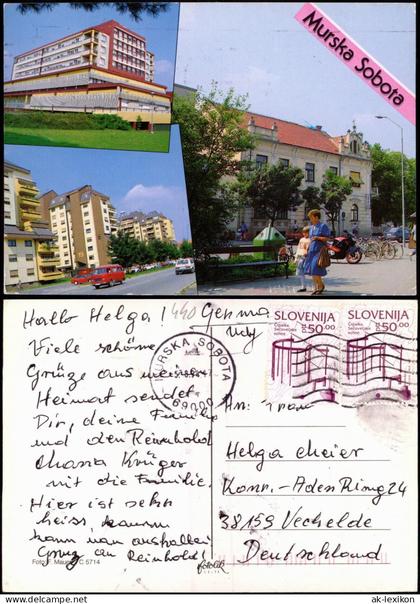 Murska Sobota
Hallo Helga! 440 Germa
ny
Viele schöne
Grüze aus meiner
Heimat sendet
Dir, deine Familie
und den Reinhold
Krüger
mit die Familie.
Hier ist sehr
heiss, kaum
kann man aushalten
Gruß an Reinhold!
Foto: F. Mauec, C 5714
MURSKA SOBOTA
69000
SLOVENIJA
50.00
SLOVENIJA
50.00
An: Frau
Helga Meier
Konr.-Aden Ring 24
38159 Vechelde
Deutschland
fotolik
© www.ak-ansichtskarten.de
ak-lexikon